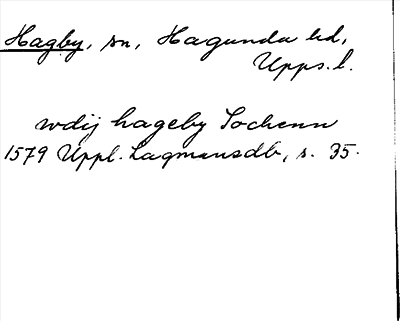 Hagby, sn, Hagunda hd,
Upps. l.
wdij hageby Sochenn
1579 Uppl. Lagmansdb, s. 35.